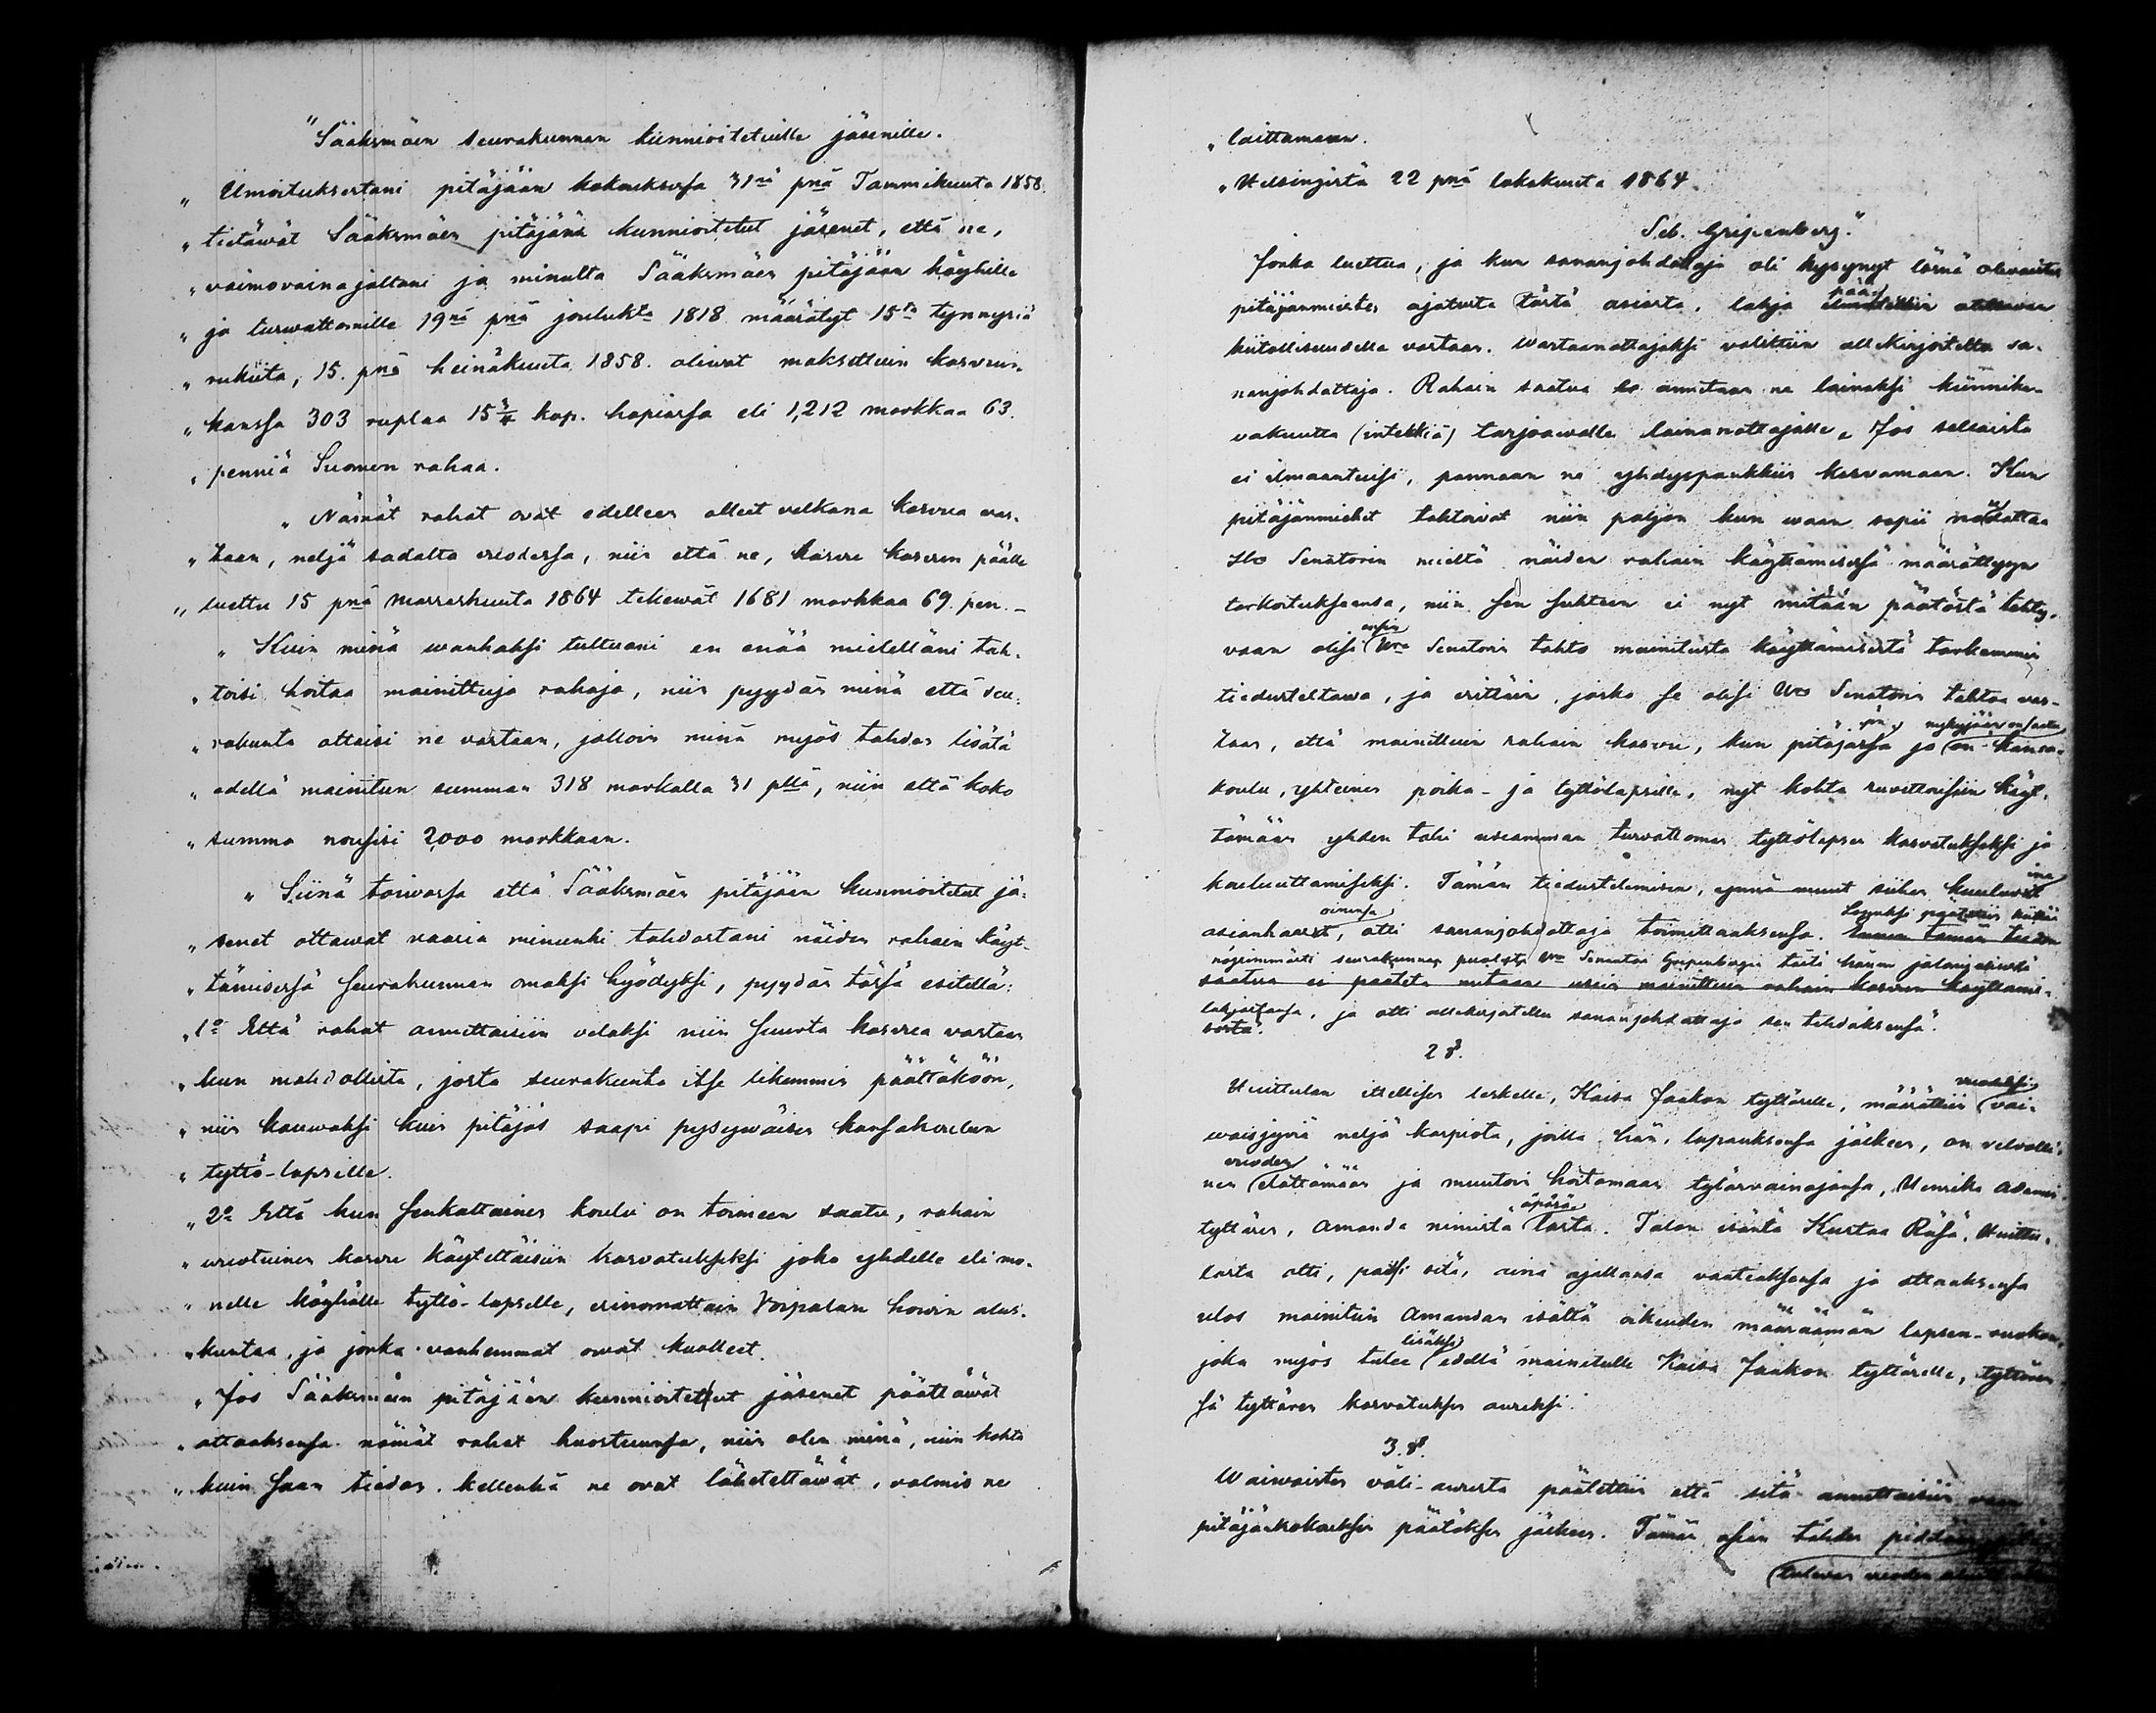 "Sääksmäen seurakunnan kunnioitetuille jäsenille.
„ Ilmoituksestani pitäjään kokouksessa 31nä pnä Tammikuuta 1858.
„ tietäwät Sääksmäen pitäjänä kunnioitetut jäsenet, että ne,
„ vaimovainajaltani ja minulta Sääksmäen pitäjään köyhille
„ ja turwattomille 19nä pnä joulukta 1818 määrätyt 15ta tynnyriä
„ rukiita, 15. pnä heinäkuuta 1858. oliwat maksettuin kasvun-
„ kanssa 303 ruplaa 15 3/4 kop. hopiassa eli 1,212 markkaa 63.
„ penniä Suomen rahaa.
„ Nämät rahat ovat edelleen olleet velkana kasvua vas-
„ taan, neljä sadalta vuodessa, niin että ne, kasvu kasvun päälle
„ luettu 15 pnä Marraskuuta 1864 tekewät 1681 markkaa 69 pen. –
„ Kuin minä wanhaksi tultuani en enää mielelläni tah-
„ toisi hoitaa mainittuja rahoja, niin pyydän minä että seu-
„ rakunta ottaisi ne vastaan, jolloin minä myös tahdon lisätä
„ edellä mainitun summan 318 markalla 31 pllä, niin että koko
„ summa nousisi 2,000 markkaan.
„ Siinä toiwossa että Sääksmäen pitäjään kunnioitetut jä-
„ senet ottawat vaaria minunki tahdostani näiden rahain käyt-
„ tämisessä seurakunnan omaksi hyödyksi, pyydän tässä esitellä:
„ 1o Että rahat annettaisiin velaksi niin suurta kasvua vastaan
„ kun mahdollista, josta seurakunta itse likemmin päättäköön,
„ niin kauwaksi kuin pitäjäs saapi pysywäisen kansakoulun
„ tyttö-lapsille.
„ 2o Että kun senkaltainen koulu on toimeen saatu, rahain
„ vuotuinen kasvu käytettäisiin kasvatukseksi joko yhdelle eli mo-
„ nelle köyhälle tyttö-lapselle, erinomattain Voipalan howin alus-
„ kuntaa, ja jonka vanhemmat owat kuolleet.
„ Jos Sääksmäen pitäjään kunnioitetut jäsenet päättäwät
„ ottaaksensa nämät rahat huostuunsa, niin olen minä, niin kohta
„ kuin saan tiedon kellenkä ne ovat lähetettäwät, valmis ne
„ laittamaan.
„ Helsingistä 22 pnä lokakuuta 1864.
Seb. Gripenberg."
Jonka luettua, ja kun sananjohdattaja oli kysynyt läsnä olevaisten
pitäjänmiesten ajatusta tästä asiasta, lahja otettavan
kiitollisuudella vastaan. Wastaanottajaksi valittiin allekirjoitettu sa-
nanjohdattaja. Rahain saatua annetaan ne lainaksi kiinnike-
vakuutta (intekkiä) tarjoawalle lainanottajalle. Jos sellaista
ei ilmaantuisi, pannaan ne yhdyspankkiin kasvamaan. Kun
pitäjänmiehet tahtoivat niin paljon kun waan sopii noudattaa
Hra Senatorin mieltä näiden rahain käyttämisessä määrättyyn
tarkoitukseensa, niin sen suhteen ei nyt mitään päätöstä tehty,
vaan olisi ensin Hra Senatorin tahto mainitusta käyttämisestä tarkemmin
tiedusteltawa, ja erittäin, josko se olisi Hra Senatorin tahtoa vas-
nykyjään on saatu
taan, että mainittuin rahain kasvu, kun pitäjässä jo on kansa-
koulu, yhteinen poika- ja tyttölapsille, nyt kohta ruvettaisiin käyt-
tämään yhden tahi useamman turvattoman tyttölapsen kasvatukseksi ja
kouluuttamiseksi. Tämän tiedustelemisen, ynnä muut siihen kuuluvat
asianhaarat, otti sananjohdattaja toimittaaksensa. Ennen tämän tiedon
nöyrimmästi seurakunnan puolesta Hra Senatori Gripenbergiä tästä hänen jalomielisestä
saatua ei päätetä mitään mainittuin rahain kasvun käyttämi-
lahjastansa, ja otti allekirjoitettu sananjohdattaja sen tehdäksensä".
sestä".
2 §.
Huittulan itsellisen leskelle, Kaisa Jaakon tyttärelle, määrättiin vuodeksi vai-
waisjyviä neljä karpiota, joilla hän, lupauksensa jälkeen, on velwolli-
nen vuoden elättämään ja muutoin hoitamaan tytärvainajansa, Henrika Adamin
tyttären, Amanda nimistä äpärä lasta. Talon isäntä Kustaa Räisä, Huittu-
lasta otti, paitsi sitä, aina ajallansa vaateaksensa ja ottaaksensa
ulos mainitun Amandan isältä oikeuden määräämän lapsen-ruokon,
joka myös tulee lisäksi edellä mainitulle Kaisa Jaakon tyttärelle, tyttären-
sä tyttären kasvatuksen awuksi.
3. §.
Waiwaisten väli-awusta päätettiin että sitä annettaisiin vaan
pitäjänkokouksen päätöksen jälkeen. Tämän asian tähden pidetään
tulewan vuoden